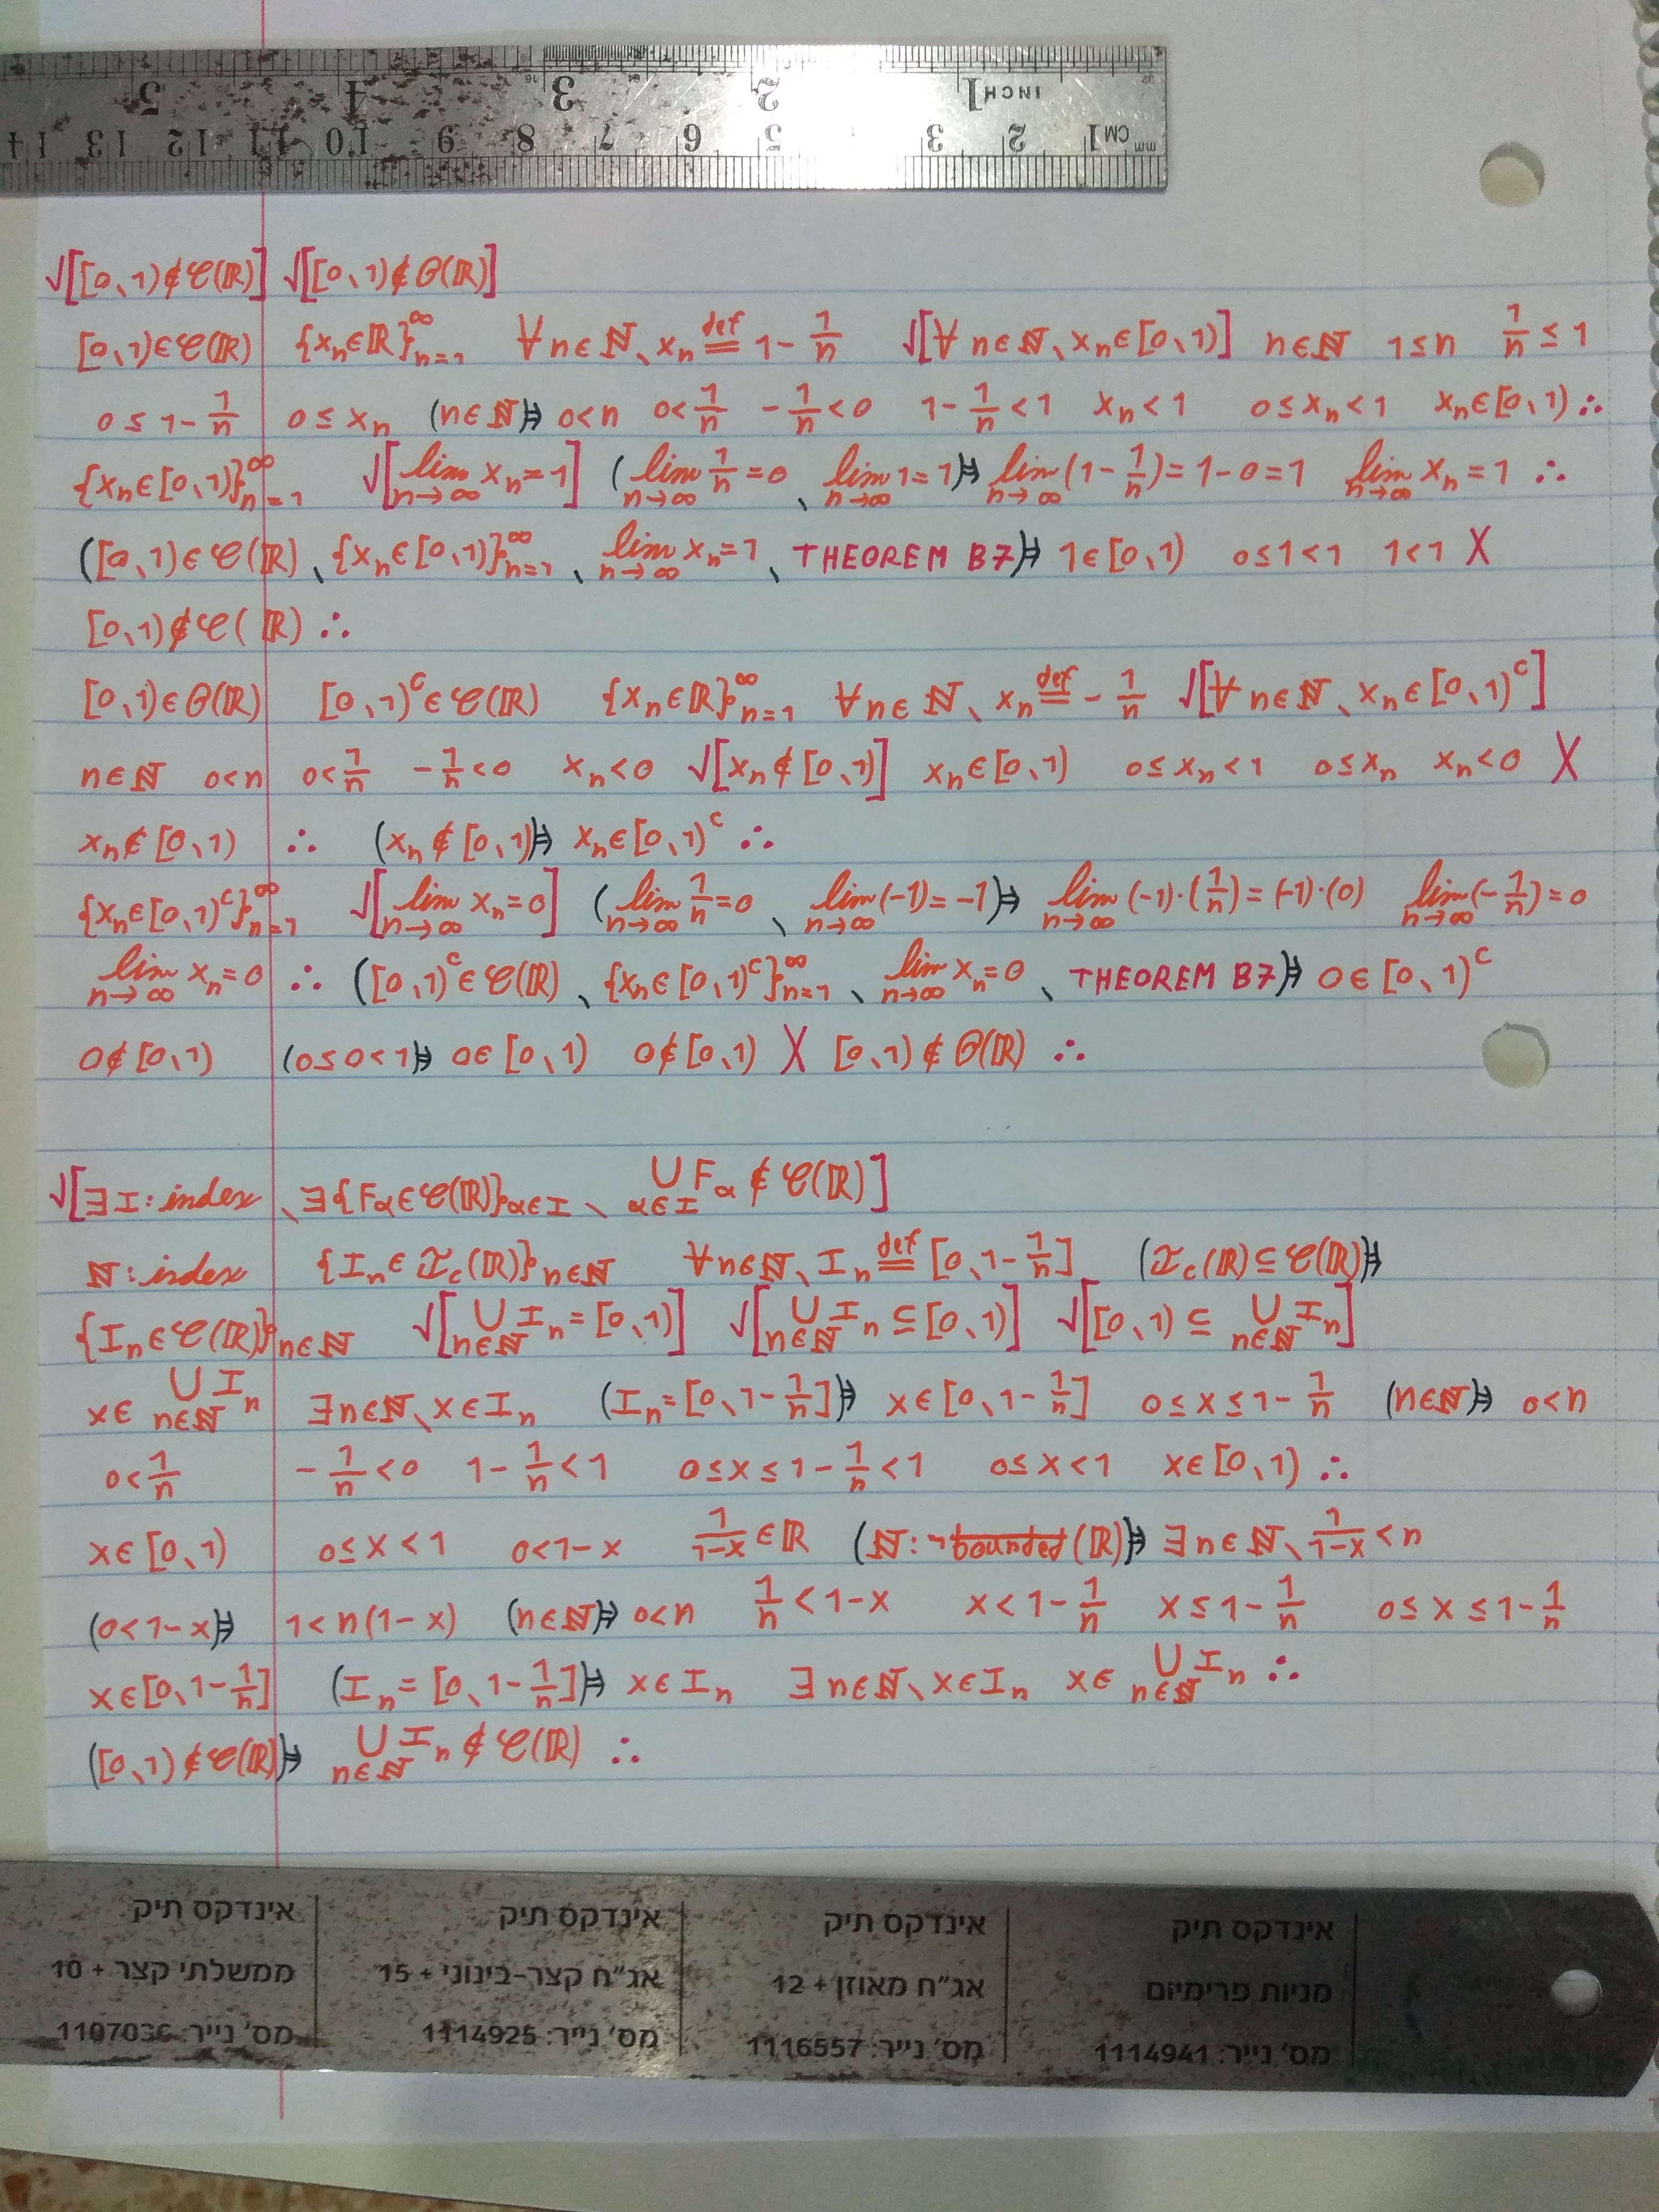 5 4 3 2 1 INCH
14 13 12 11 10 9 8 7 6 5 3 2 1 CM mm
√[[0、1)∉𝒞(ℝ)] √[[0、1)∉𝒪(ℝ)]
[0、1)∈𝒞(ℝ) {xₙ∈ℝ}_{n=1}^∞ ∀n∈ℕ、xₙ ≝ 1-1/n √[∀n∈ℕ、xₙ∈[0、1)] n∈ℕ 1≤n 1/n≤1
0≤1-1/n 0≤xₙ (n∈ℕ)⊧ 0<n 0<1/n -1/n<0 1-1/n<1 xₙ<1 0≤xₙ<1 xₙ∈[0、1) ∴
{xₙ∈[0、1)}_{n=1}^∞ √[lim_{n→∞} xₙ=1] (lim_{n→∞} 1/n=0、lim_{n→∞} 1=1)⊧ lim_{n→∞}(1-1/n)=1-0=1 lim_{n→∞} xₙ=1 ∴
([0、1)∈𝒞(ℝ)、{xₙ∈[0、1)}_{n=1}^∞、lim_{n→∞} xₙ=1、THEOREM B7)⊧ 1∈[0、1) 0≤1<1 1<1 X
[0、1)∉𝒞(ℝ) ∴
[0、1)∈𝒪(ℝ) [0、1)^c∈𝒞(ℝ) {xₙ∈ℝ}_{n=1}^∞ ∀n∈ℕ、xₙ ≝ -1/n √[∀n∈ℕ、xₙ∈[0、1)^c]
n∈ℕ 0<n 0<1/n -1/n<0 xₙ<0 √[xₙ∉[0、1)] xₙ∈[0、1) 0≤xₙ<1 0≤xₙ xₙ<0 X
xₙ∉[0、1) ∴ (xₙ∉[0、1))⊧ xₙ∈[0、1)^c ∴
{xₙ∈[0、1)^c}_{n=1}^∞ √[lim_{n→∞} xₙ=0] (lim_{n→∞} 1/n=0、lim_{n→∞}(-1)=-1)⊧ lim_{n→∞}(-1)·(1/n)=(-1)·(0) lim_{n→∞}(-1/n)=0
lim_{n→∞} xₙ=0 ∴ ([0、1)^c∈𝒞(ℝ)、{xₙ∈[0、1)^c}_{n=1}^∞、lim_{n→∞} xₙ=0、THEOREM B7)⊧ 0∈[0、1)^c
0∉[0、1) (0≤0<1)⊧ 0∈[0、1) 0∉[0、1) X [0、1)∉𝒪(ℝ) ∴
√[∃I:index、∃{F_α∈𝒞(ℝ)}_{α∈I}、∪_{α∈I} F_α∉𝒞(ℝ)]
ℕ:index {Iₙ∈ℐ_c(ℝ)}_{n∈ℕ} ∀n∈ℕ、Iₙ ≝ [0、1-1/n] (ℐ_c(ℝ)⊆𝒞(ℝ))⊧
{Iₙ∈𝒞(ℝ)}_{n∈ℕ} √[∪_{n∈ℕ} Iₙ=[0、1)] √[∪_{n∈ℕ} Iₙ⊆[0、1)] √[[0、1)⊆∪_{n∈ℕ} Iₙ]
x∈∪_{n∈ℕ} Iₙ ∃n∈ℕ、x∈Iₙ (Iₙ=[0、1-1/n])⊧ x∈[0、1-1/n] 0≤x≤1-1/n (n∈ℕ)⊧ 0<n
0<1/n -1/n<0 1-1/n<1 0≤x≤1-1/n<1 0≤x<1 x∈[0、1) ∴
x∈[0、1) 0≤x<1 0<1-x 1/(1-x)∈ℝ (ℕ:¬bounded(ℝ))⊧ ∃n∈ℕ、1/(1-x)<n
(0<1-x)⊧ 1<n(1-x) (n∈ℕ)⊧ 0<n 1/n<1-x x<1-1/n x≤1-1/n 0≤x≤1-1/n
x∈[0、1-1/n] (Iₙ=[0、1-1/n])⊧ x∈Iₙ ∃n∈ℕ、x∈Iₙ x∈∪_{n∈ℕ} Iₙ ∴
([0、1)∉𝒞(ℝ))⊧ ∪_{n∈ℕ} Iₙ∉𝒞(ℝ) ∴
אינדקס תיק
מניות פרימיום
מס' נייר: 1114941
אינדקס תיק
אג"ח מאוזן + 12
מס' נייר: 1116557
אינדקס תיק
אג"ח קצר-בינוני + 15
מס' נייר: 1114925
אינדקס תיק
ממשלתי קצר + 10
מס' נייר: